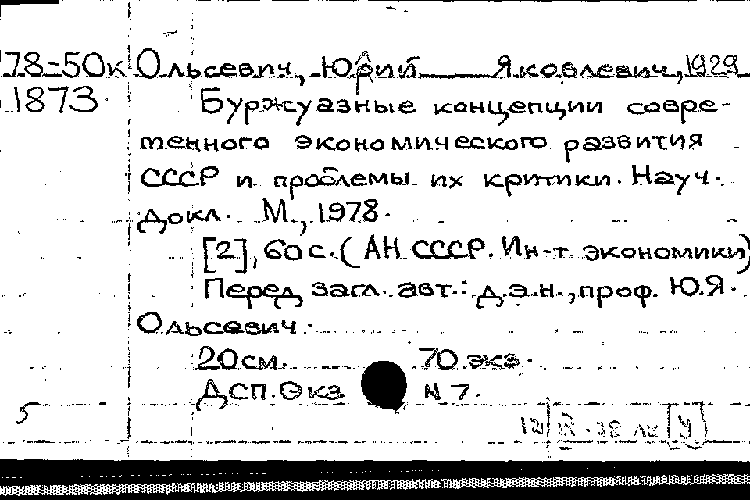 78-50к Ольсевич, Юрий Яковлевич, 1929
1873 Буржуазные концепции совре-
менного экономического развития
СССР и проблемы их критики. Науч.
докл. М., 1978.
[2], 60 с. (АН СССР. Ин-т экономики)
Перед загл. авт.: д.э.н., проф. Ю.Я.
Ольсевич.
20 см. 70 экз.
ДСП. Экз N 7.
5